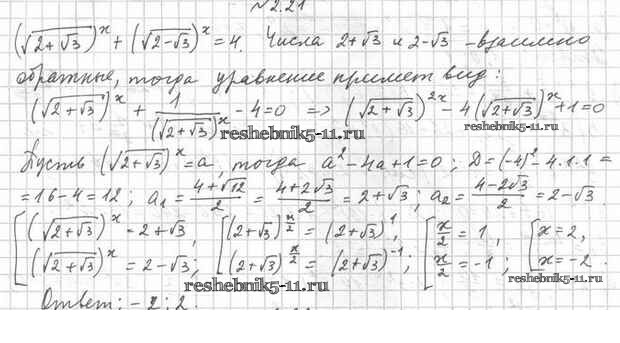 №2.21
(√(2+√3))^x + (√(2-√3))^x = 4. Числа 2+√3 и 2-√3 - взаимно
обратные, тогда уравнение примет вид:
(√(2+√3))^x + 1/(√(2+√3))^x - 4=0 => (√(2+√3))^2x - 4(√(2+√3))^x + 1=0
reshebnik5-11.ru
reshebnik5-11.ru
Пусть (√(2+√3))^x = a, тогда a² - 4a + 1 = 0; D = (-4)² - 4·1·1 =
= 16 - 4 = 12; a₁ = (4+√12)/2 = (4+2√3)/2 = 2+√3; a₂ = (4-2√3)/2 = 2-√3.
[(√(2+√3))^x = 2+√3, [(2+√3)^(x/2) = (2+√3)^1, [x/2 = 1, [x=2,
(√(2+√3))^x = 2-√3; (2+√3)^(x/2) = (2+√3)^-1; x/2 = -1; x=-2.
Ответ: -2; 2.
reshebnik5-11.ru